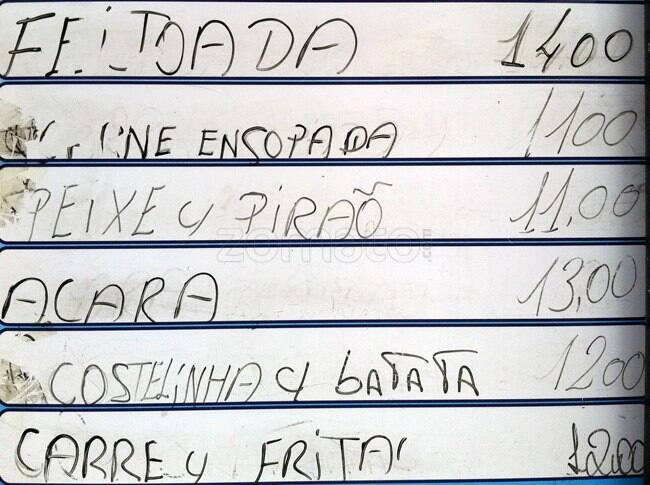 FEIJOADA 1400
ENSOPADA 1100
PEIXE C/ PIRÃO 11,00
zomato
ACARA 13,00
COSTELINHA C/ BATATA 1200
CARRE C/ FRITA 12,00